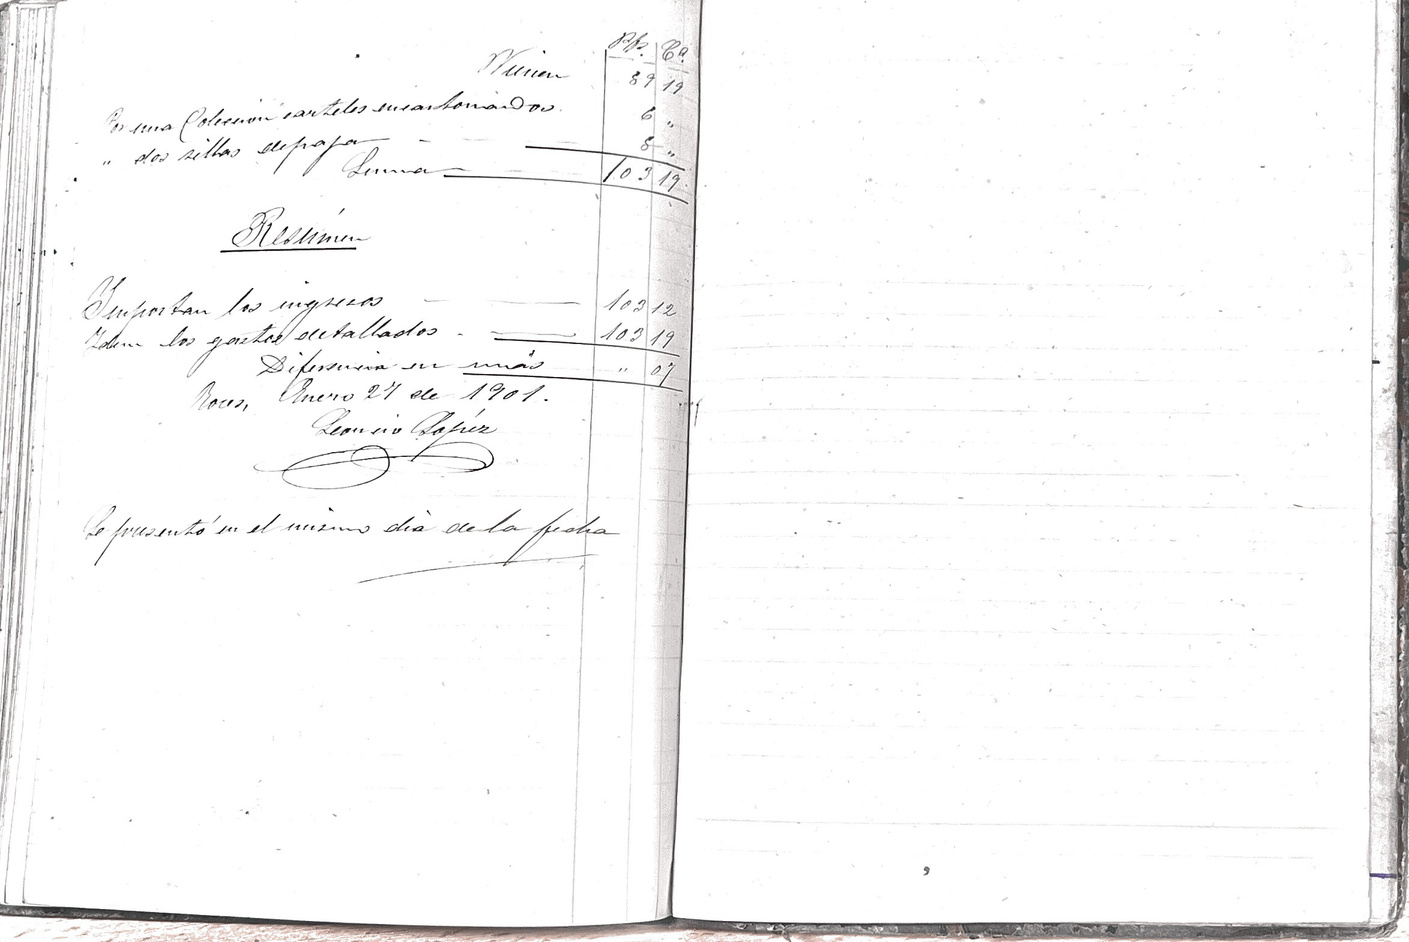 Pts. Cs.
Vienen 89 19
Por una Colección carteles encartonados 6 "
" dos sillas de paja 8 "
Suma 103 19
Resúmen
Importan los ingresos 103 12
Idem los gastos detallados 103 19
Diferencia en más " 07
Enero 27 de 1901.
Leoncio López
Se presentó en el mismo dia de la fecha